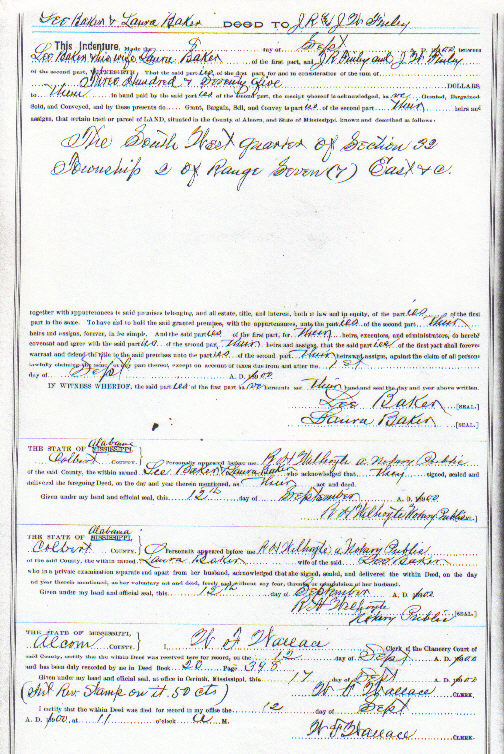 Geo Baker & Laura Baker DEED TO J R & J W Finley
This Indenture, Made the 5 day of Sept A. D. 1900 between
Geo Baker & his wife Laura Baker of the first part, and J R Finley and J W Finley
of the second part, WITNESSETH: That the said parties of the first part, for and in consideration of the sum of
Three Hundred & Seventy Five DOLLARS
to them in hand paid by the said parties of the second part, the receipt whereof is acknowledged, have Granted, Bargained
Sold, and Conveyed, and by these presents do Grant, Bargain, Sell, and Convey to parties of the second part their heirs and
assigns, that certain tract or parcel of LAND, situated in the County of Alcorn, and State of Mississippi, known and described as follows:
The South West quarter of Section 32
Township 2 of Range Seven (7) East & c.
together with appurtenances to said premises belonging, and all estate, title, and interest, both at law and in equity, of the parties of the first
part in the same. To have and to hold the said granted premises, with the appurtenances, unto the parties of the second part their
heirs and assigns, forever, in fee simple. And the said parties of the first part, for their heirs, executors, and administrators, do hereby
covenant and agree with the said parties of the second part, their heirs and assigns, that the said parties of the first part shall forever
warrant and defend the title to the said premises unto the parties of the second part. their heirs and assigns, against the claim of all persons
lawfully claiming any part thereof, except on account of taxes due from and after the 1st
day of Sept A. D. 1900
IN WITNESS WHEREOF, the said parties of the first part have hereunto set their hand and seal the day and year above written.
Geo Baker [SEAL.]
Laura Baker [SEAL.]
THE STATE OF MISSISSIPPI, Alabama
Colbert COUNTY. Personally appeared before me R H Wilhoyte a Notary Public
of the said County, the within named Geo Baker & Laura Baker who acknowledged that they signed, sealed and
delivered the foregoing Deed, on the day and year therein mentioned, as their act and deed.
Given under my hand and official seal, this 12th day of September A. D. 1900.
R H Wilhoyte Notary Public
THE STATE OF MISSISSIPPI, Alabama
Colbert COUNTY. Personally appeared before me R H Wilhoyte a Notary Public
of the said County, the within named Laura Baker wife of the said Geo Baker
who in a private examination separate and apart from her husband, acknowledged that she signed, sealed, and delivered the within Deed, on the day
and year therein mentioned, as her voluntary act and deed, freely, without any fear, threats, or compulsion of her husband.
Given under my hand and official seal, this 12th day of September A. D. 1900
R H Wilhoyte
Notary Public [SEAL.]
THE STATE OF MISSISSIPPI,
Alcorn COUNTY. I, W F Wallace Clerk of the Chancery Court of
said County, certify that the within Deed was received for record, on the 12 day of Sept A. D. 1900
and has been duly recorded by me in Deed Book 20 Page 345
Given under my hand and official seal, at office in Corinth, Mississippi, this 17 day of Sept A. D. 1900
(Int Rev Stamp on it 50 cts) W F Wallace CLERK.
I certify that the within Deed was filed for record in my office the 12 day of Sept
A. D. 1900, at 11 o'clock A M.
W F Wallace CLERK.